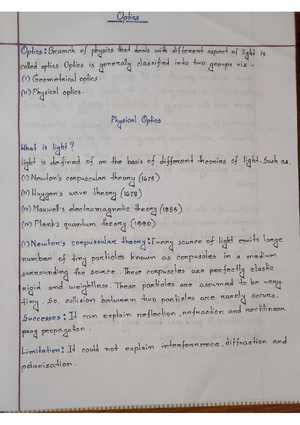 Optics
Optics: Branch of physics that deals with different aspect of light is
called optics. Optics is generally classified into two groups viz -
(i) Geometrical optics.
(ii) Physical optics.
Physical Optics
What is light?
Light is defined of on the basis of different theories of light. Such as.
(i) Newton's corpuscular theory (1675)
(ii) Huygen's wave theory (1678)
(iii) Maxwell's electromagnetic theory (1884)
(iv) Plank's quantum theory (1990)
(i) Newton's corpuscular theory: Every source of light emits large
number of tiny particles known as corpuscles in a medium
surrounding the source. These corpuscles are perfectly elastic
rigid and weightless. These particles are assumed to be very
tiny. So, collision between two particles are rarely occurs.
Successes: It can explain reflection, refraction and rectilinear
prog propagation.
Limitation: It could not explain interference, diffraction and
polarization.